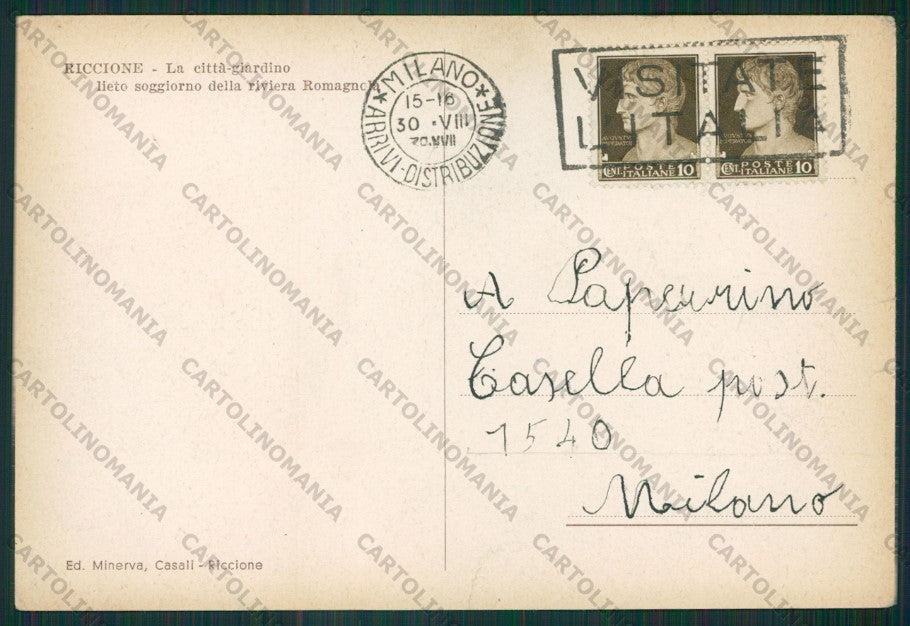 RICCIONE - La città-giardino
lieto soggiorno della riviera Romagnola
★MILANO★
15-16
30 ·VIII
ARRIVI-DISTRIBUZIONE
VISITATE
L'ITALIA
POSTE
ITALIANE
CENT. 10
POSTE
ITALIANE
CENT. 10
A Paperino
Casella post.
1540
Milano
Ed. Minerva, Casali - Riccione
CARTOLINOMANIA